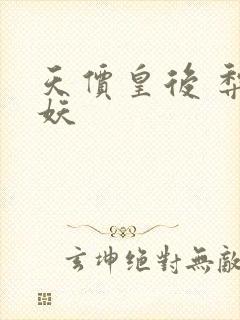 天價皇後 梨
妖
玄坤絕對無敵